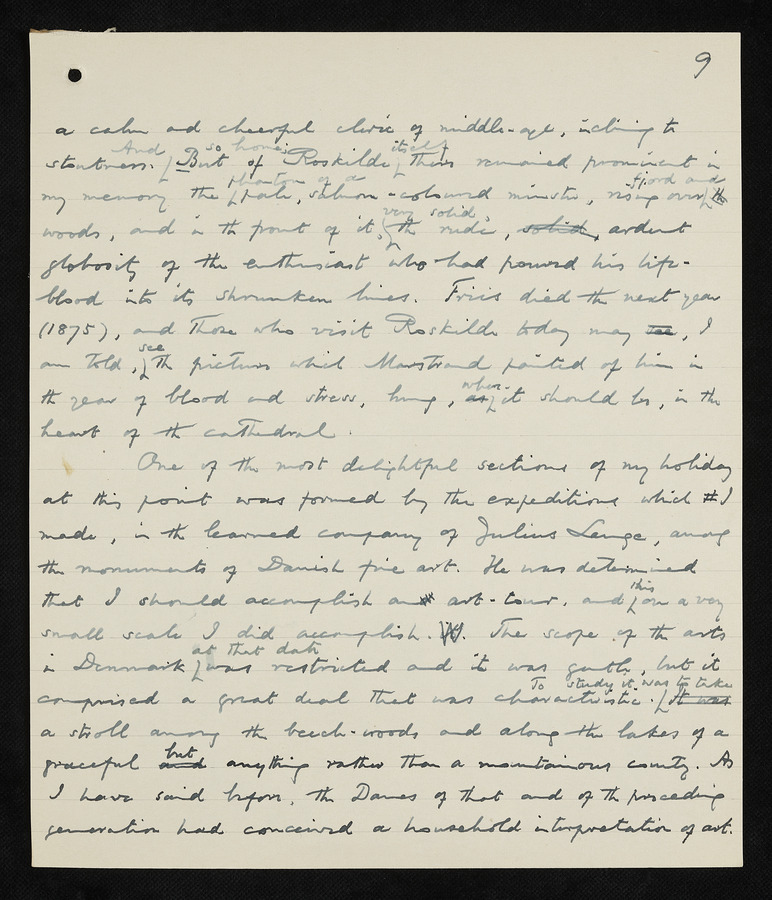 9
a calm and cheerful cleric of middle-age, inclining to
And so homeis itself
stoutness. But of Roskilde there remained prominent in
phantom of a fjord and
my memory the pale, salmon-coloured minster, rising over the
very solid,
woods, and in the front of it, the rude, solid, ardent
globosity of the enthusiast who had poured his life-
blood into its shrunken lines. Friis died the next year
(1875), and those who visit Roskilde today may see, I
see
am told, the picture which Marstrand painted of him in
where
the year of blood and stress, hung, as it should be, in the
heart of the cathedral.
One of the most delightful sections of my holiday
at this point was formed by the expeditions which I
made, in the learned company of Julius Lange, among
the monuments of Danish fine art. He was determined
this
that I should accomplish an art-tour, and on a very
small scale I did accomplish. The scope of the arts
at that date
in Denmark was restricted and it was gentle, but it
To study it was to take
comprised a great deal that was characteristic. It was
a stroll among the beech-woods and along the lakes of a
but
graceful and anything rather than a mountainous country. As
I have said before, the Danes of that and of the preceding
generation had conceived a household interpretation of art.